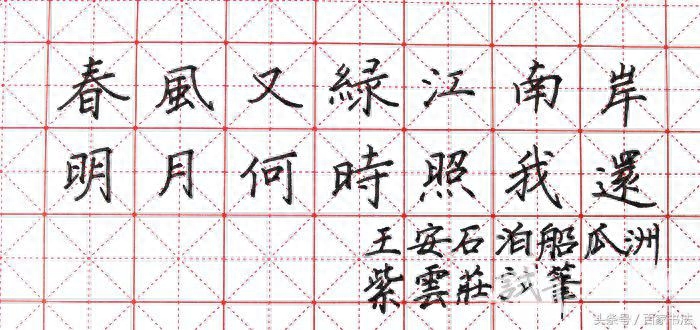 春風又綠江南岸
明月何時照我還
王安石泊船瓜洲
紫雲莊試筆
头条号／百家书法